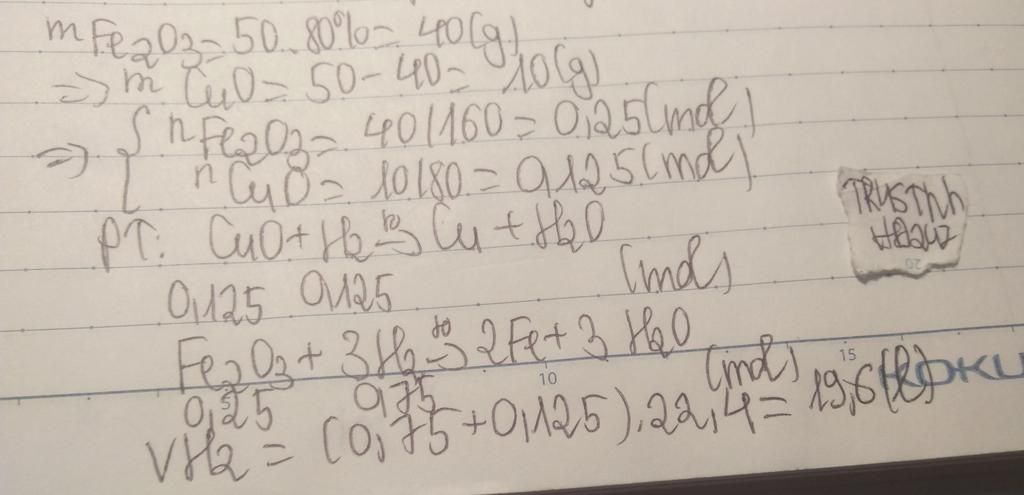 mFe2O3 = 50.80% = 40(g)
=> m CuO = 50 - 40 = 10(g)
=> { nFe2O3 = 40/160 = 0,25(mol)
nCuO = 10/80 = 0,125(mol)
PT: CuO + H2 t°-> Cu + H2O
0,125 0,125 (mol)
Fe2O3 + 3H2 t°-> 2Fe + 3 H2O
0,25 0,75 (mol)
VH2 = (0,75 + 0,125).22,4 = 19,6(l)
10
15
20